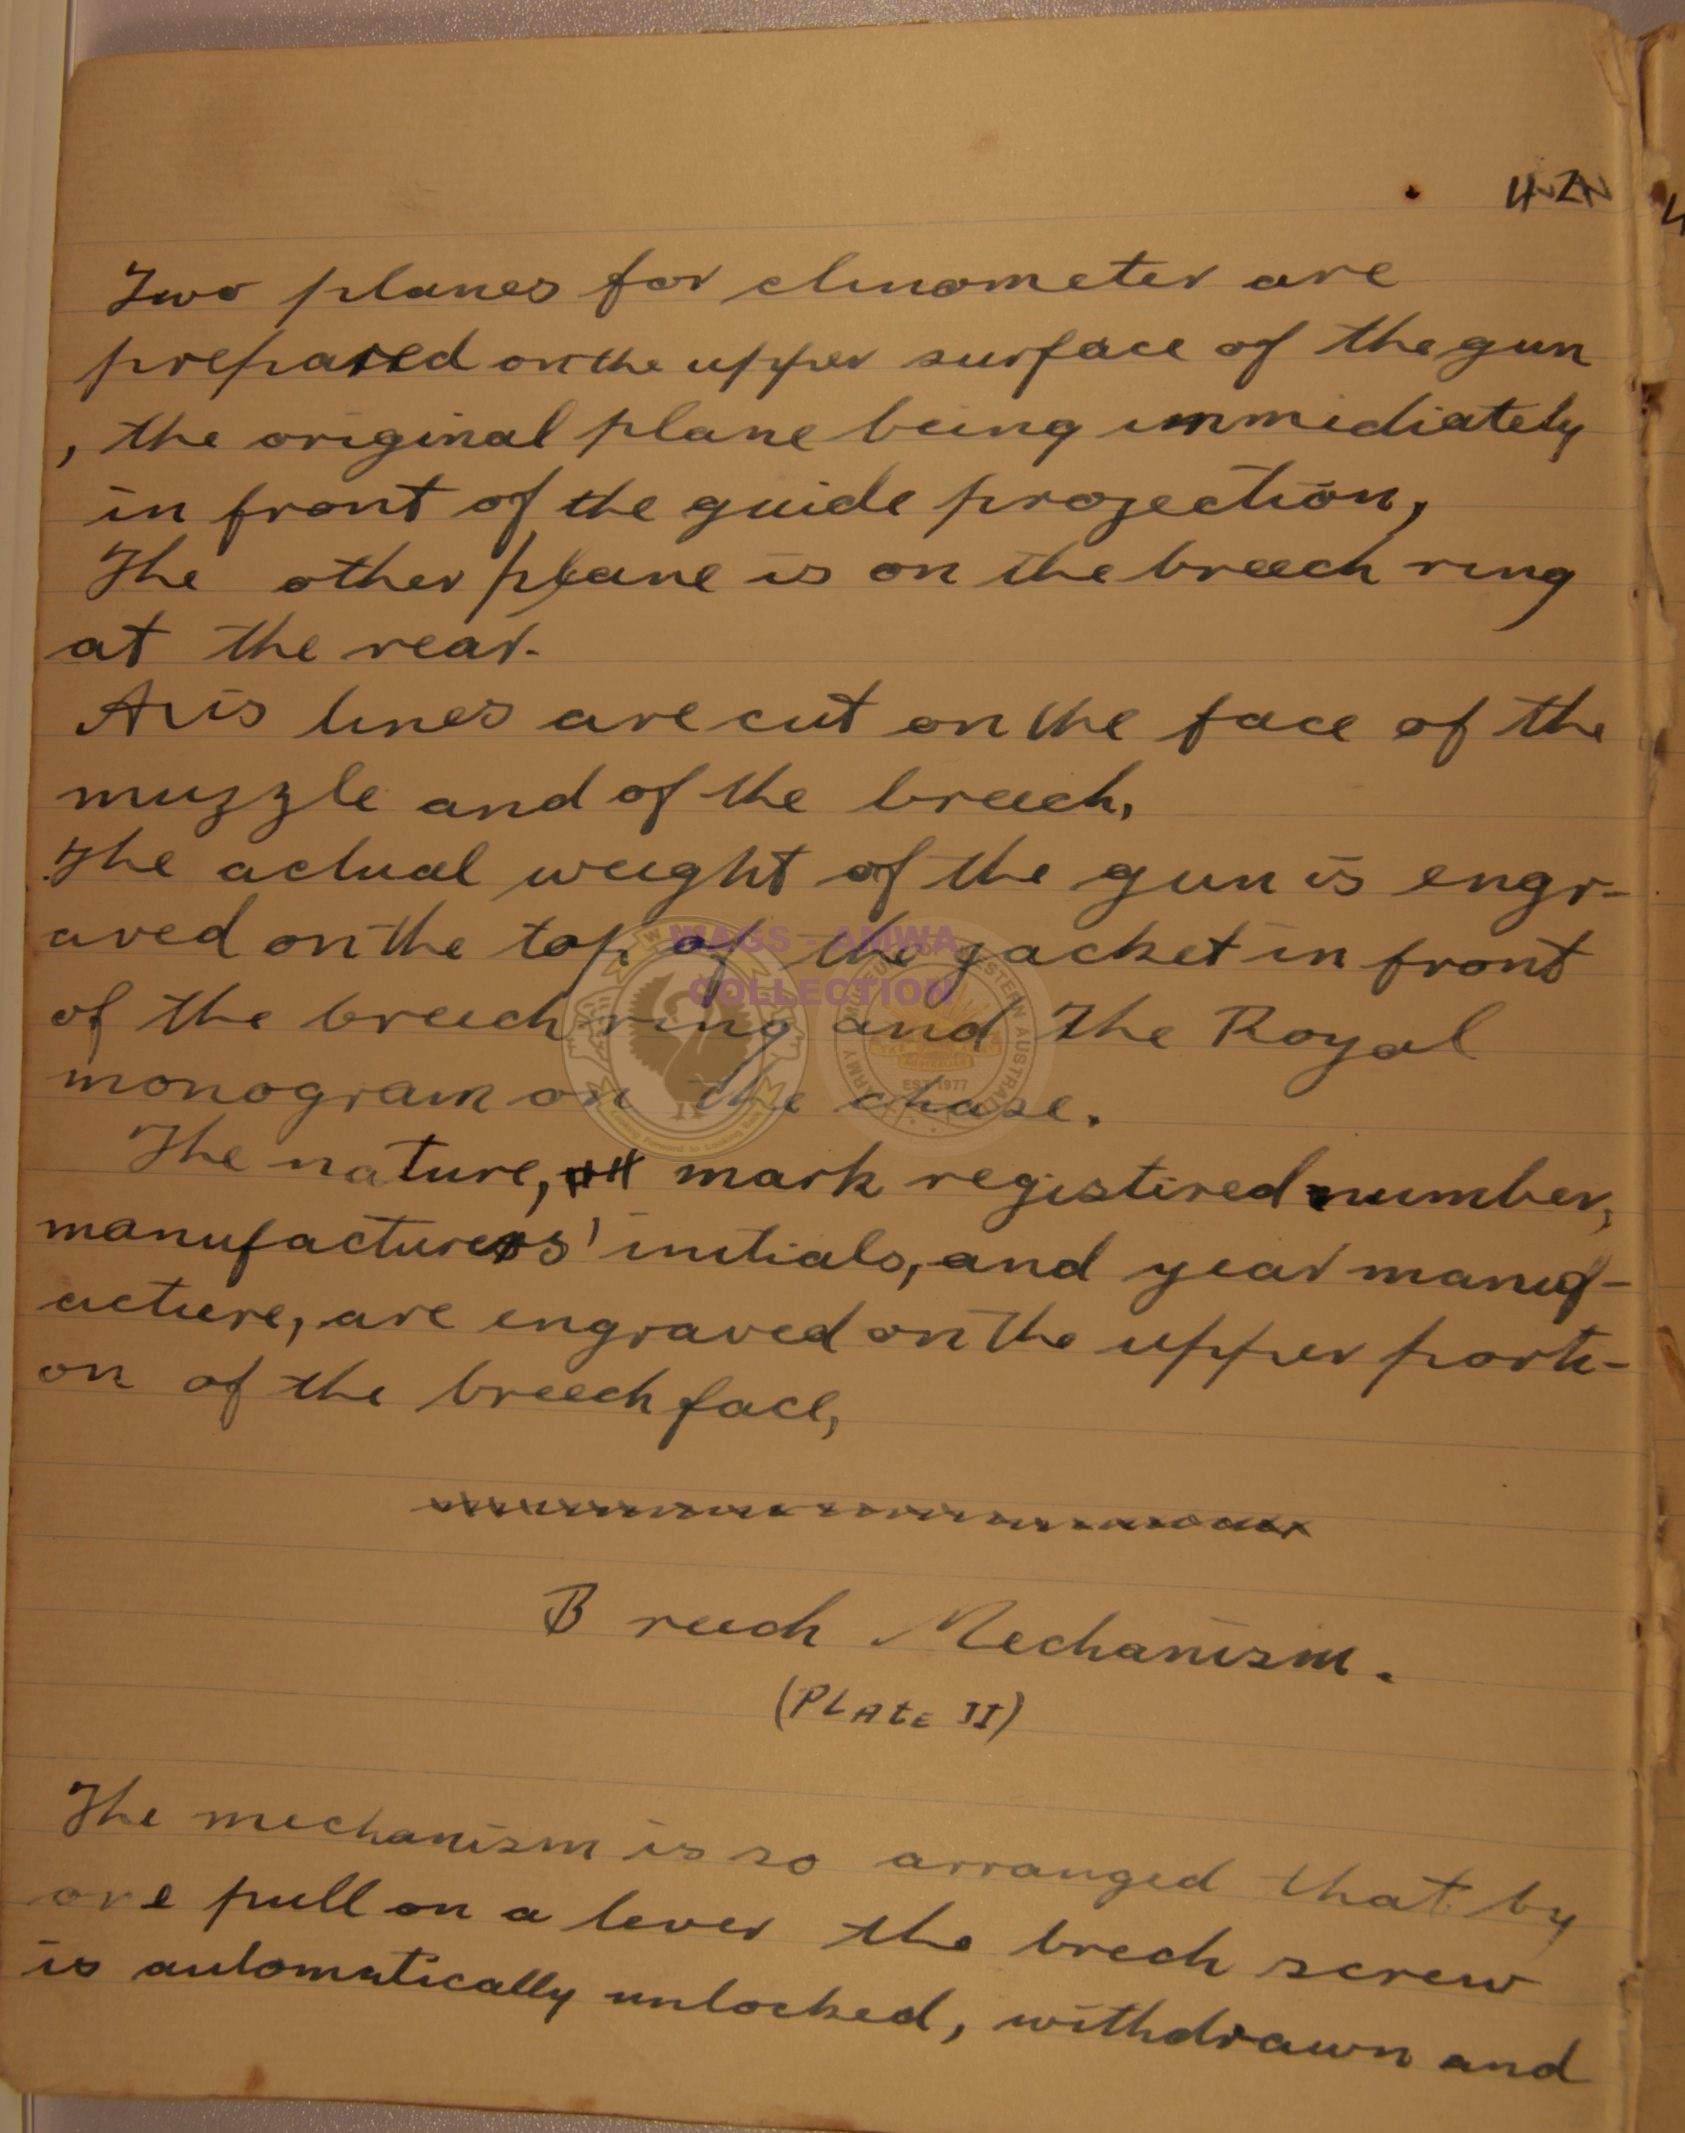 Two planes for clinometer are
prepared on the upper surface of the gun
, the original plane being immediately
in front of the guide projection,
The other plane is on the breech ring
at the rear.
Axis lines are cut on the face of the
muzzle and of the breech,
The actual weight of the gun is engr-
aved on the top of the jacket in front
of the breech ring and the Royal
monogram on the chase.
The nature, mark registired number,
manufacturers' initials, and year manuf-
acture, are engraved on the upper porti-
on of the breech face,
Breech Mechanism.
(PLAtE II)
The mechanism is so arranged that by
one pull on a lever the brech screw
is automatically unlocked, withdrawn and
WAGS - AMWA
COLLECTION
ARMY MUSEUM OF WESTERN AUSTRALIA
EST 1977
Looking Forward to Looking Back